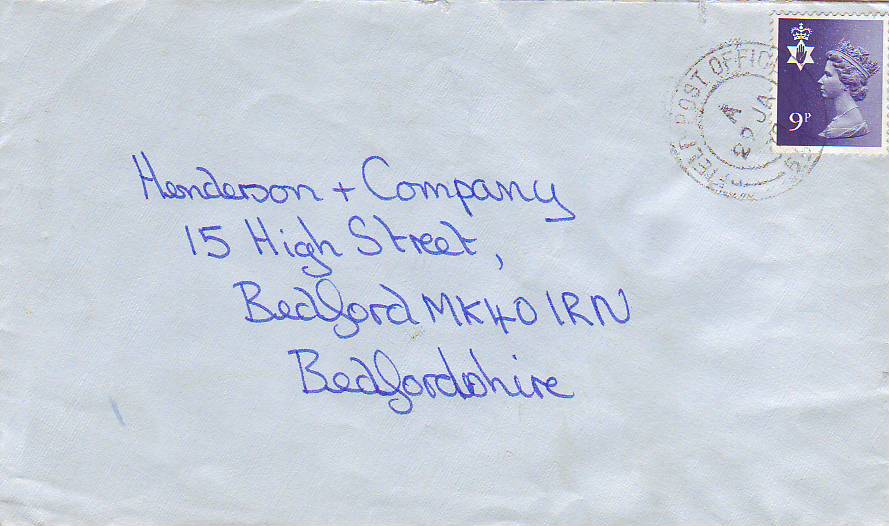 FIELD POST OFFICE
A
JA
9P
Henderson + Company
15 High Street,
Bedford MK40 1RN
Bedfordshire